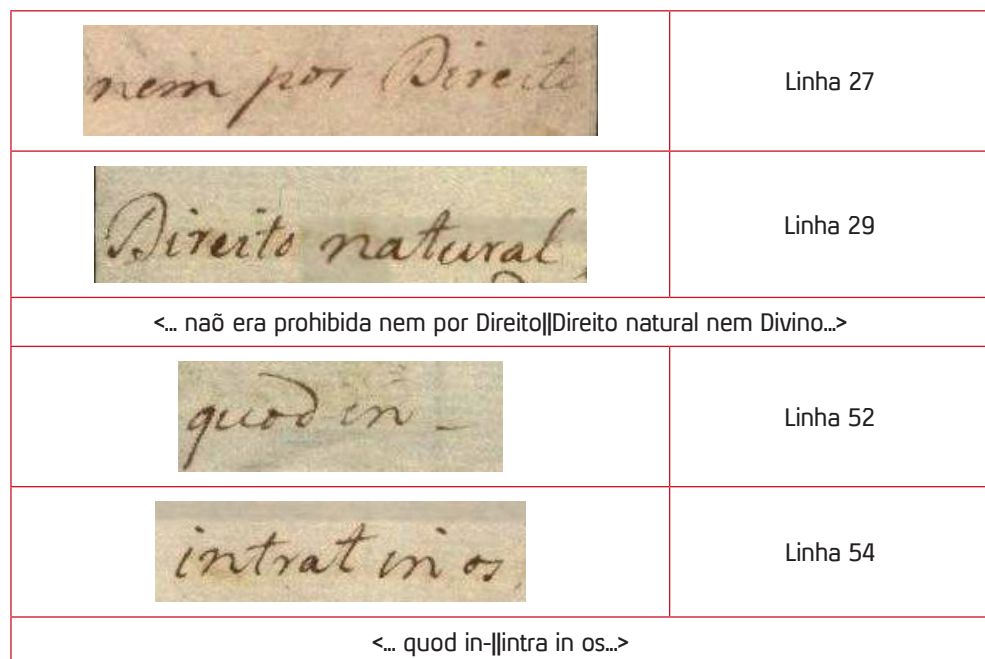 nem por Direito
Linha 27
Direito natural,
Linha 29
<... naõ era prohibida nem por Direito||Direito natural nem Divino...>
quod in-
Linha 52
intrat in os,
Linha 54
<... quod in-||intra in os...>